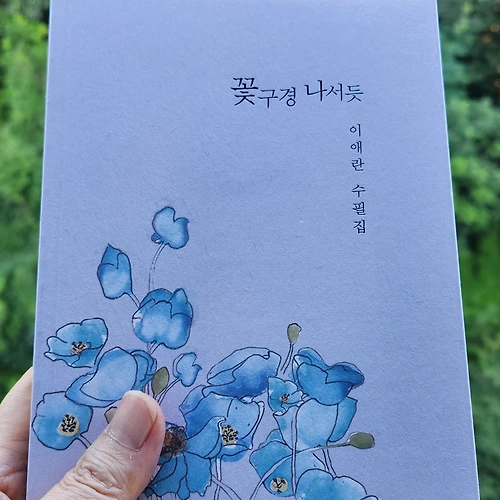 꽃구경 나서듯
이애란 수필집